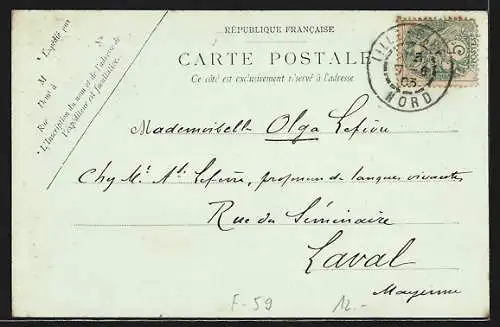 RÉPUBLIQUE FRANÇAISE
CARTE POSTALE
Ce côté est exclusivement réservé à l'adresse
* Expédié par
M
Demt à
Rue
No
* L'Inscription du nom et de l'adresse de
l'expéditeur est facultative.
LILLE
6
03
NORD
5
Mademoiselle Olga Lefèvre
Chez Mr. Ad. Lefèvre, professeur de langues vivantes
Rue du Séminaire
Laval
Mayenne
F-59
12.-